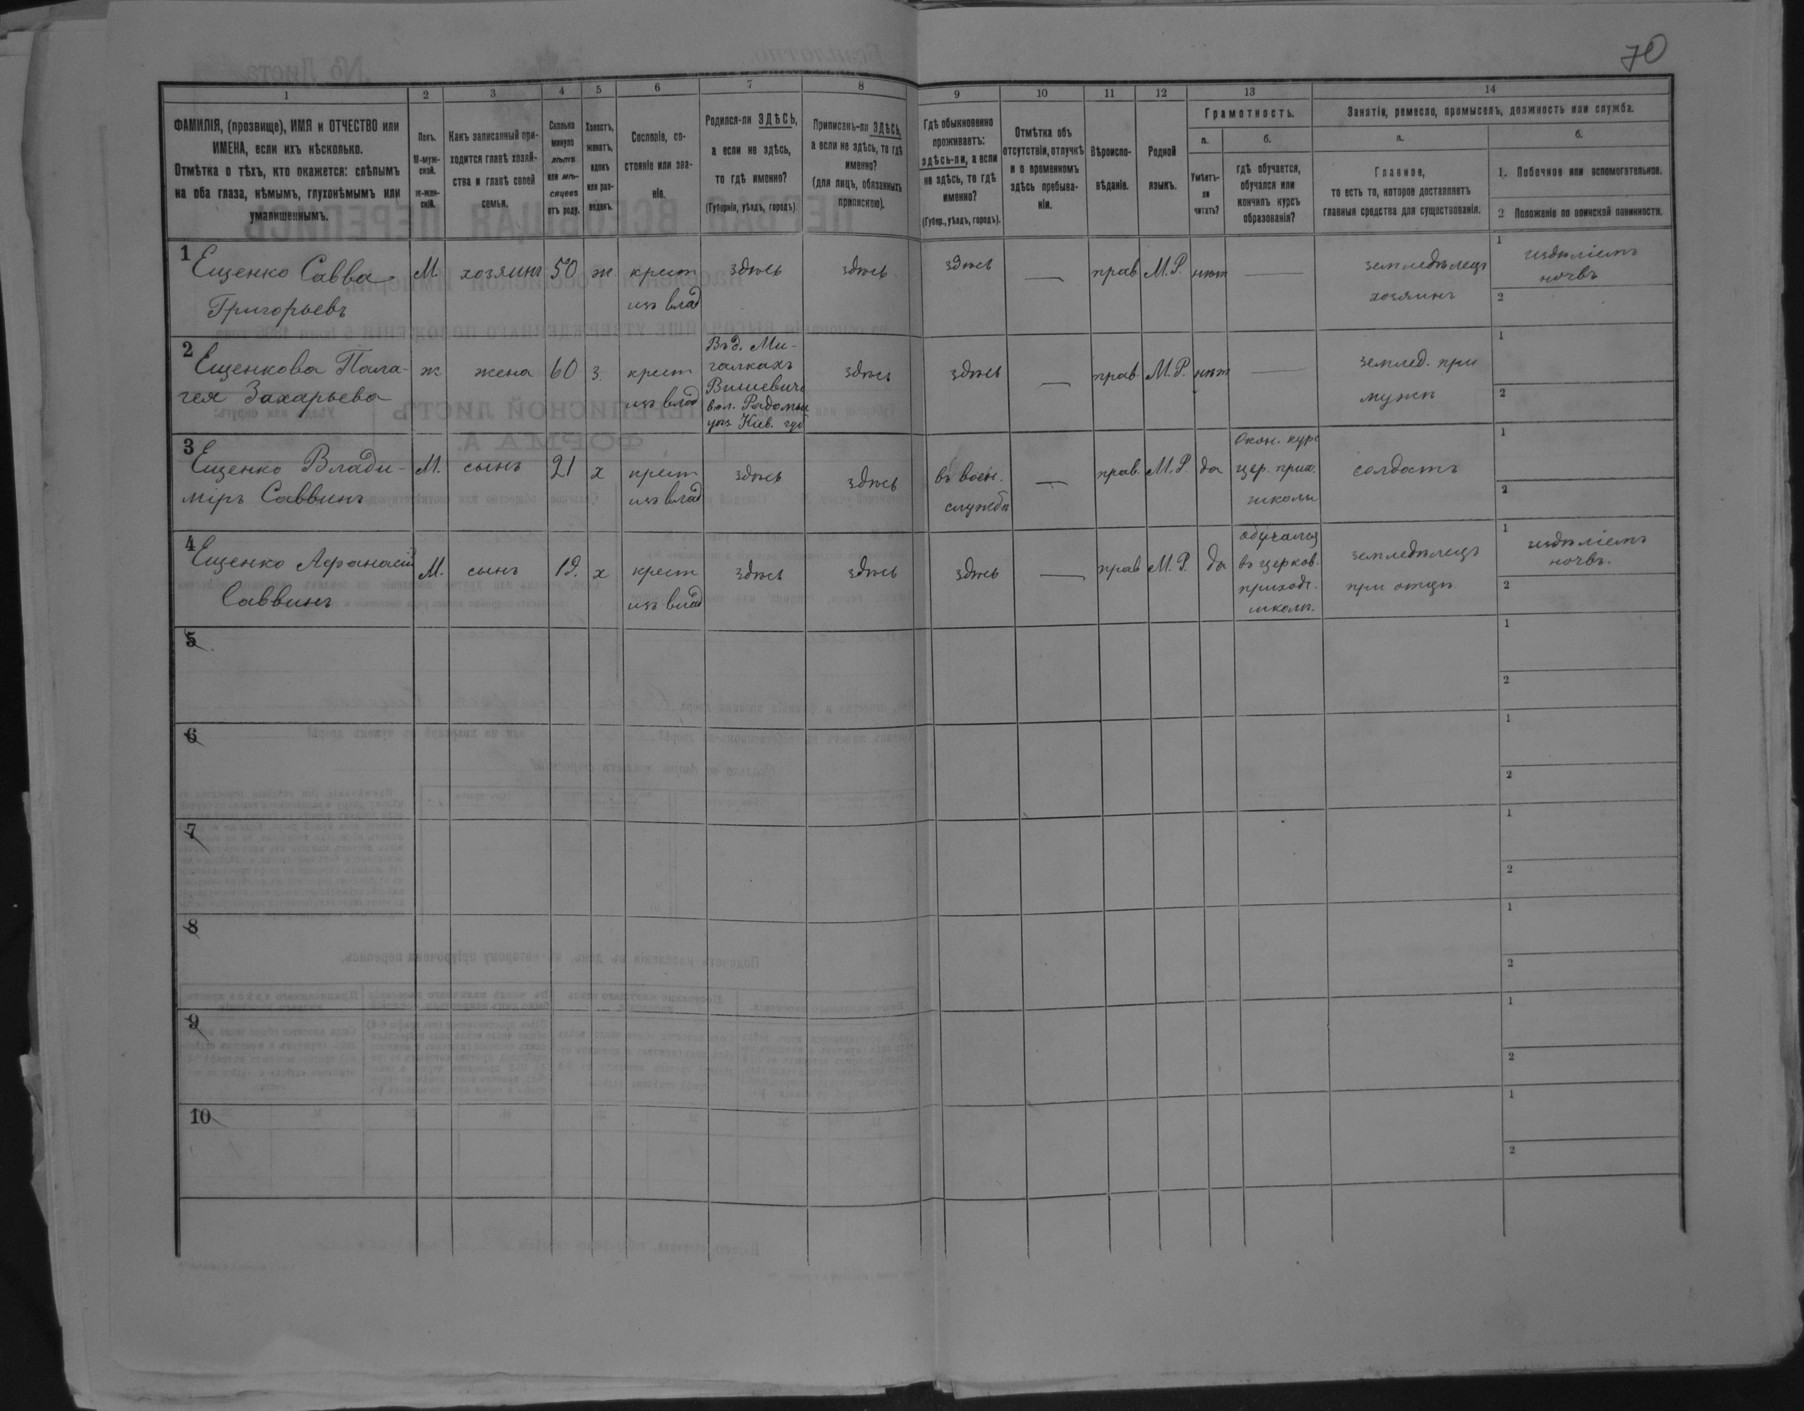 70
1 2 3 4 5 6 7 8 9 10 11 12 13 14
ФАМИЛІЯ, (прозвище), ИМЯ и ОТЧЕСТВО или
ИМЕНА, если ихъ нѣсколько.
Отмѣтка о тѣхъ, кто окажется: слѣпымъ
на оба глаза, нѣмымъ, глухонѣмымъ или
умалишеннымъ.
Полъ.
М-муж-
ской.
ж-жен-
скій.
Какъ записанный при-
ходится главѣ хозяй-
ства и главѣ своей
семьи.
Сколько
минуло
лѣтъ
или мѣ-
сяцевъ
отъ роду.
Холостъ,
женатъ,
вдовъ
или раз-
веденъ.
Сословіе, со-
стояніе или зва-
ніе.
Родился-ли ЗДѢСЬ,
а если не здѣсь,
то гдѣ именно?
(Губернія, уѣздъ, городъ)
Приписанъ-ли ЗДѢСЬ,
а если не здѣсь, то гдѣ
именно?
(для лицъ, обязанныхъ
припискою).
Гдѣ обыкновенно
проживаетъ:
здѣсь-ли, а если
не здѣсь, то гдѣ
именно?
(Губер., уѣздъ, городъ).
Отмѣтка объ
отсутствіи, отлучкѣ
и о временномъ
здѣсь пребыва-
ніи.
Вѣроиспо-
вѣданіе.
Родной
языкъ.
Грамотность.
а.
Умѣетъ-
ли
читать?
б.
гдѣ обучается,
обучался или
кончилъ курсъ
образованія?
Занятіе, ремесло, промыселъ, должность или служба.
а.
Главное,
то есть то, которое доставляетъ
главныя средства для существованія.
б.
1. Побочное или вспомогательное.
2 Положеніе по воинской повинности.
1 Ещенко Савва М. хозяинъ 50 ж крест здѣсь здѣсь здѣсь — прав М.Р. нѣт — земледѣлецъ 1
Григорьевъ из влад хозяинъ 2
2 Ещенкова Пала- ж жена 60 з. крест Въ д. Ми- здѣсь здѣсь — прав М.Р. нѣт — землед. при 1
гея Захарьева из влад галкахъ мужѣ 2
Вишевичи
вол. Радомы
уѣз Кіев. губ
3 Ещенко Влади- М. сынъ 21 х крест здѣсь здѣсь въ воен. — прав. М.Р. да Окон. курс солдатъ 1
міръ Саввинъ из влад службѣ цер. прих. 2
школы
4 Ещенко Афанасій М. сынъ 19. х крест здѣсь здѣсь здѣсь — прав М.Р. да обучался земледѣлецъ 1
Саввинъ из влад въ церков. при отцѣ 2
приход.
школѣ.
5 1
2
6 1
2
7 1
2
8 1
2
9 1
2
10 1
2